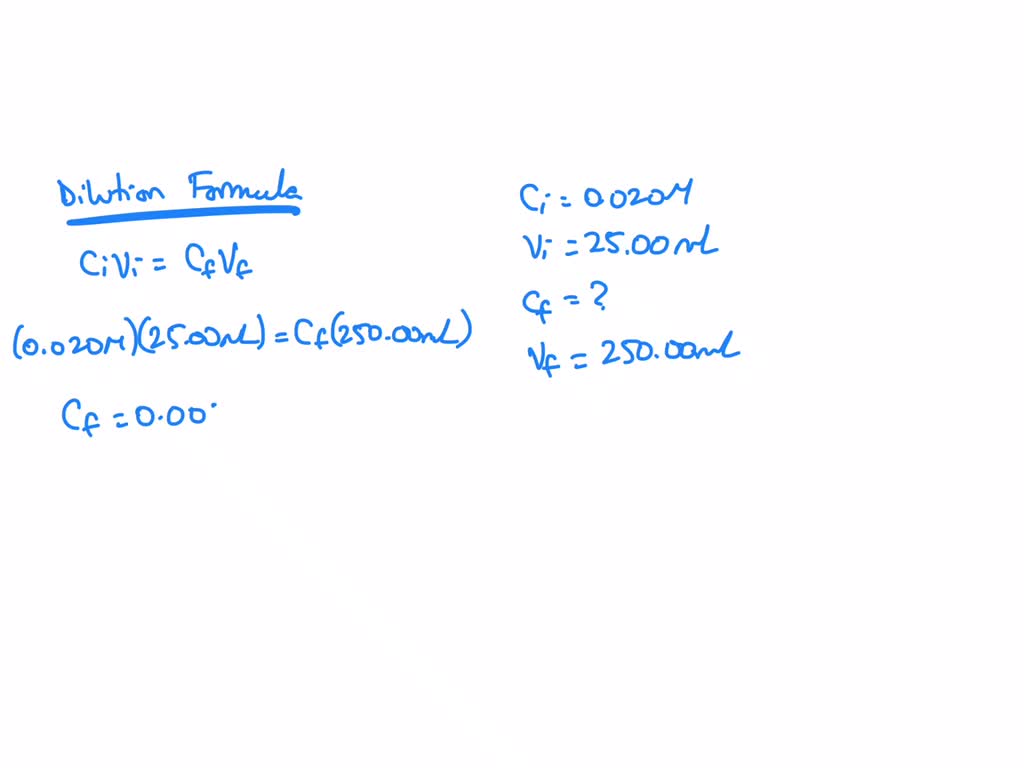 Dilution Formula
CiVi = CfVf
(0.020M)(25.00mL) = Cf(250.00mL)
Cf = 0.00
Ci = 0.020M
Vi = 25.00mL
Cf = ?
Vf = 250.00mL